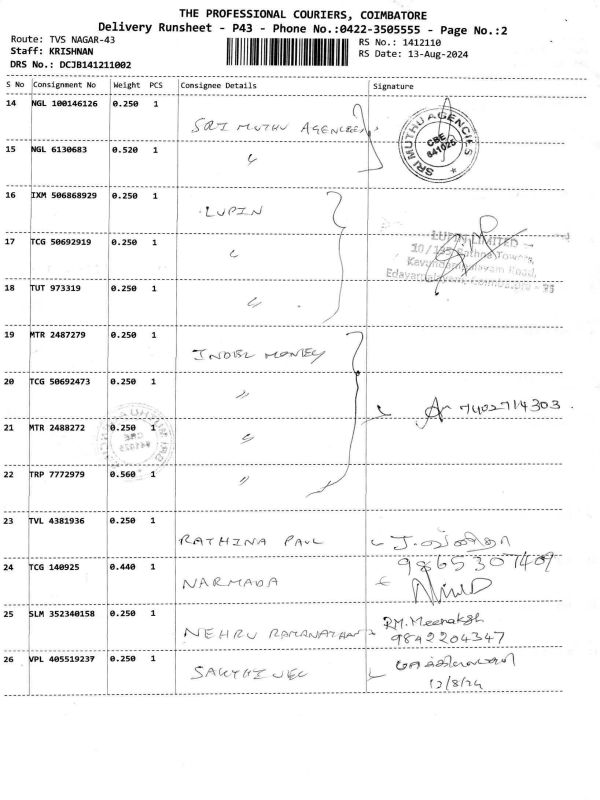 THE PROFESSIONAL COURIERS, COIMBATORE
Delivery Runsheet - P43 - Phone No.:0422-3505555 - Page No.:2
Route: TVS NAGAR-43 RS No.: 1412110
Staff: KRISHNAN RS Date: 13-Aug-2024
DRS No.: DCJB141211002
S No Consignment No Weight PCS Consignee Details Signature
14 NGL 100146126 0.250 1 SRI MUTHU AGENCIES
SRI MUTHU AGENCIES
CBE
641025
15 NGL 6130683 0.520 1 "
16 IXM 506868929 0.250 1 LUPIN
17 TCG 50692919 0.250 1 "
LUPIN LIMITED
Towers,
Road,
18 TUT 973319 0.250 1 "
19 MTR 2487279 0.250 1 INDEL MONEY
20 TCG 50692473 0.250 1 "
7402714303
21 MTR 2488272 0.250 1 "
22 TRP 7772979 0.560 1 "
23 TVL 4381936 0.250 1 RATHINA PAUL
24 TCG 140925 0.440 1 NARMADA
9865307409
25 SLM 352340158 0.250 1 NEHRU RAMANATHAN RM.Meenaksh
9842204347
26 VPL 405519237 0.250 1 SAKTHIVEL
12/8/24